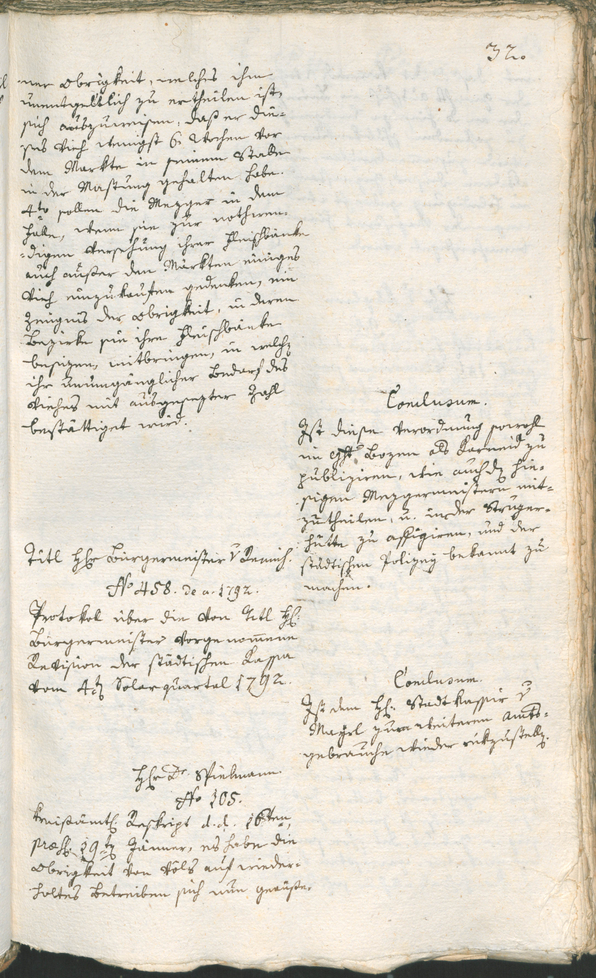 32.
ner Obrigkeit, welches ihm
unentgeltlich zu ertheilen ist,
sich auszuweisen, daß er die-
ses Vieh wenigst 6 Wochen vor
dem Markte in seinem Stalle
in der Mastung gehalten habe.
4to sollen die Mezger in dem
Falle, wenn sie zur nothwen-
digen Versehung ihrer Fleischbänke
auch außer den Märkten einiges
Vieh einzukaufen gedenken, ein
Zeugnis der Obrigkeit, in deren
Bezirke sie ihre Fleischbänke
besizen, mitbringen, in welchem
ihr unumgänglicher Bedarf des
Viehes mit ausgesezter Zahl
bestättiget wird.
Conclusum.
Ist diese Verordnung sowohl
im Bozen als Karneid zu
publiziren, wie auch den hie-
sigen Mezgermeistern mit-
zutheilen, u. in der
hütte zu affigiren, und der
städtischen Polizey bekannt zu
machen.
Titl Hr Bürgermeister v
No 458. de a. 1792.
Protokol über die von Titl Hr.
Bürgermeister vorgenommene
Revision der städtischen Kassa
vom 4ten Solarquartal 1792.
Conclusum.
Ist dem Hr. Stadtkassier v
Mayrl zum weiteren Amts-
gebrauche wieder rükzustellen.
Hr Dr Spielmann
No 105.
Kreisämtl. Reskript d. d. 16ten,
präs. 19ten Jänner, es habe die
Obrigkeit von Völs auf wieder-
holtes Betreiben sich nun geäuße-